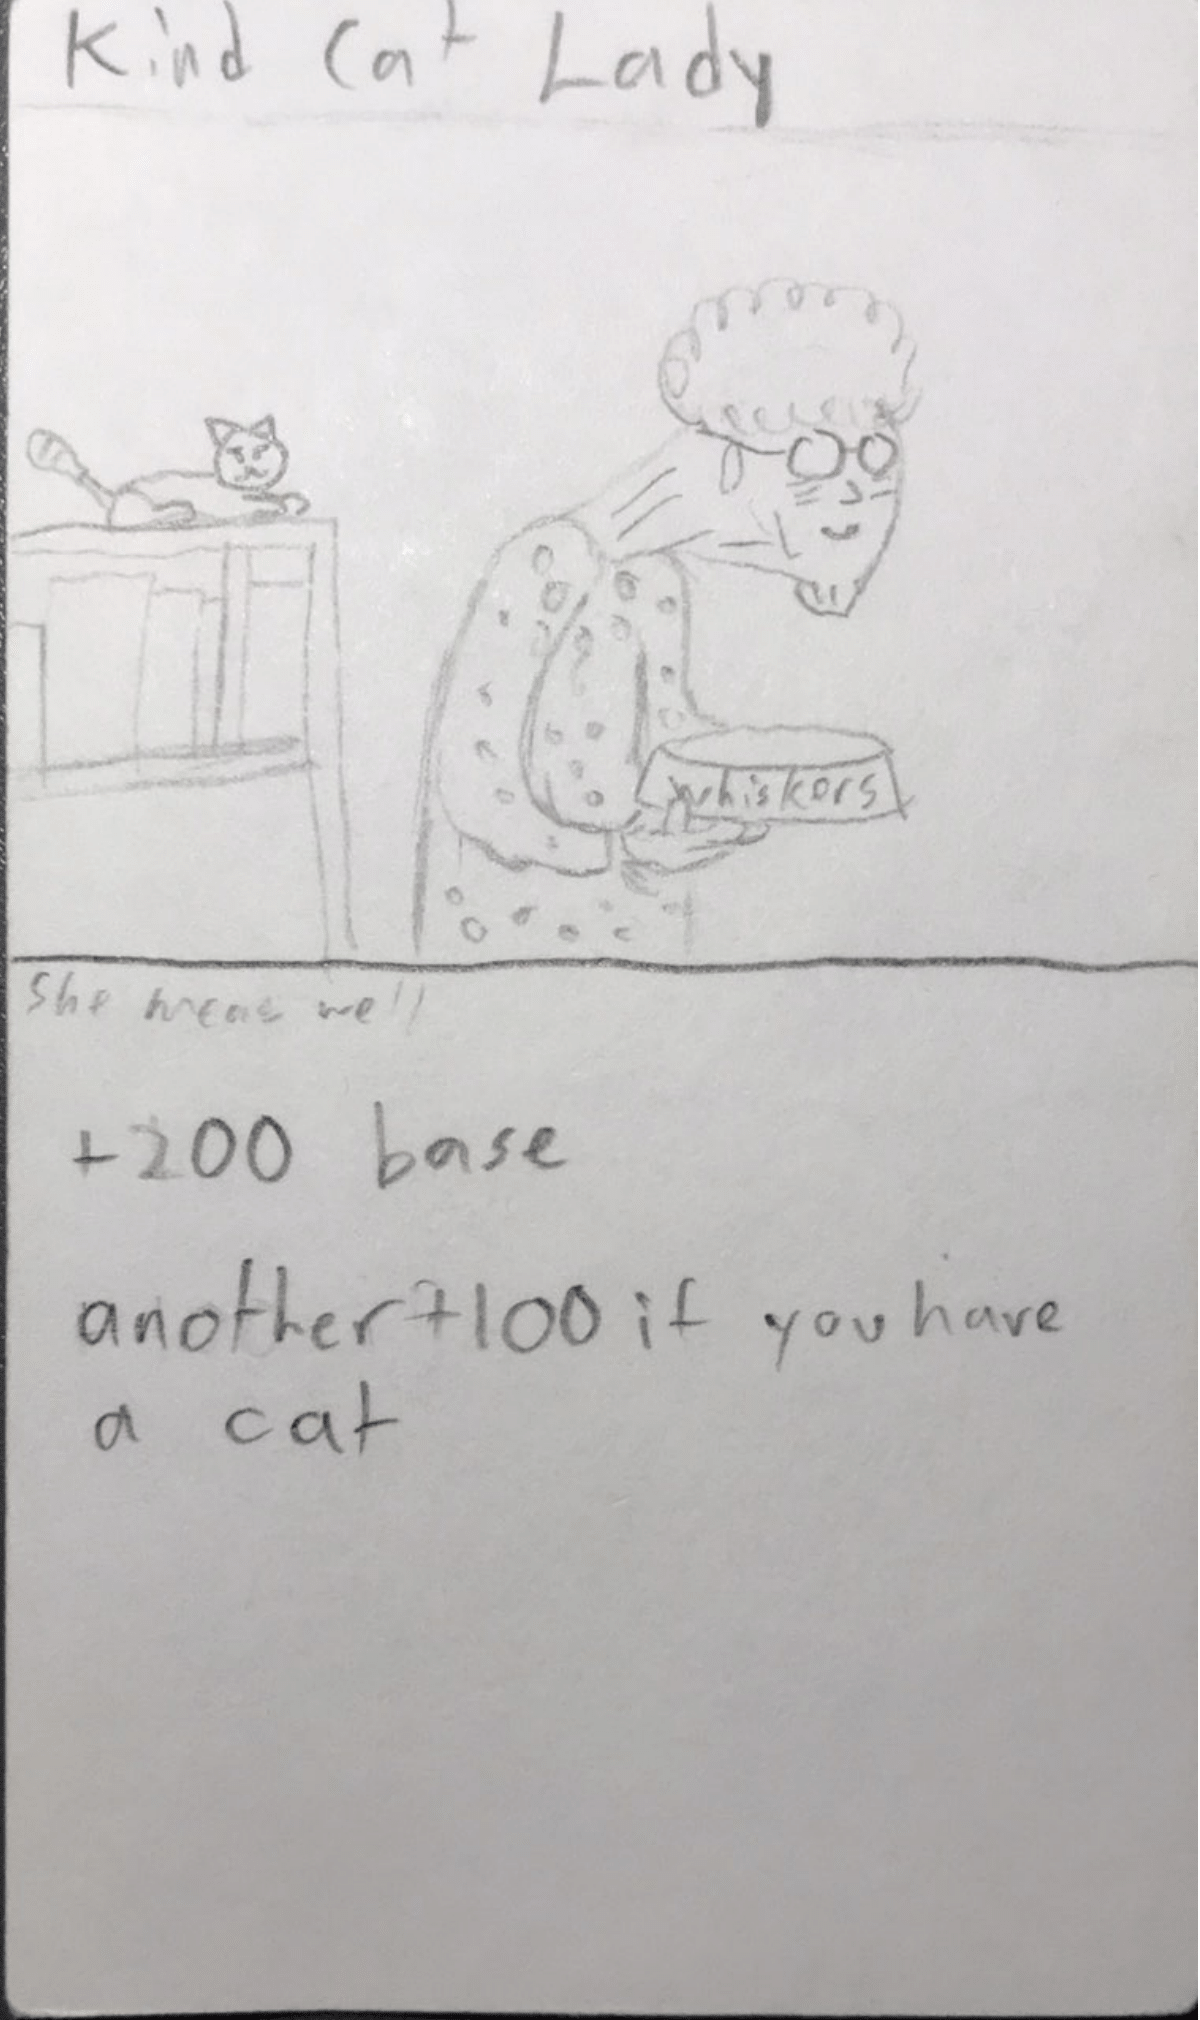 Kind Cat Lady
whiskers
She means well
+200 base
another +100 if you have
a cat